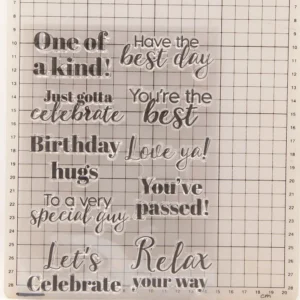 One of
a kind!
Have the
best day
Just gotta
celebrate
You're the
best
Birthday
hugs
Love ya!
To a very
special guy
You've
passed!
Let's
Celebrate
Relax
your way
cm